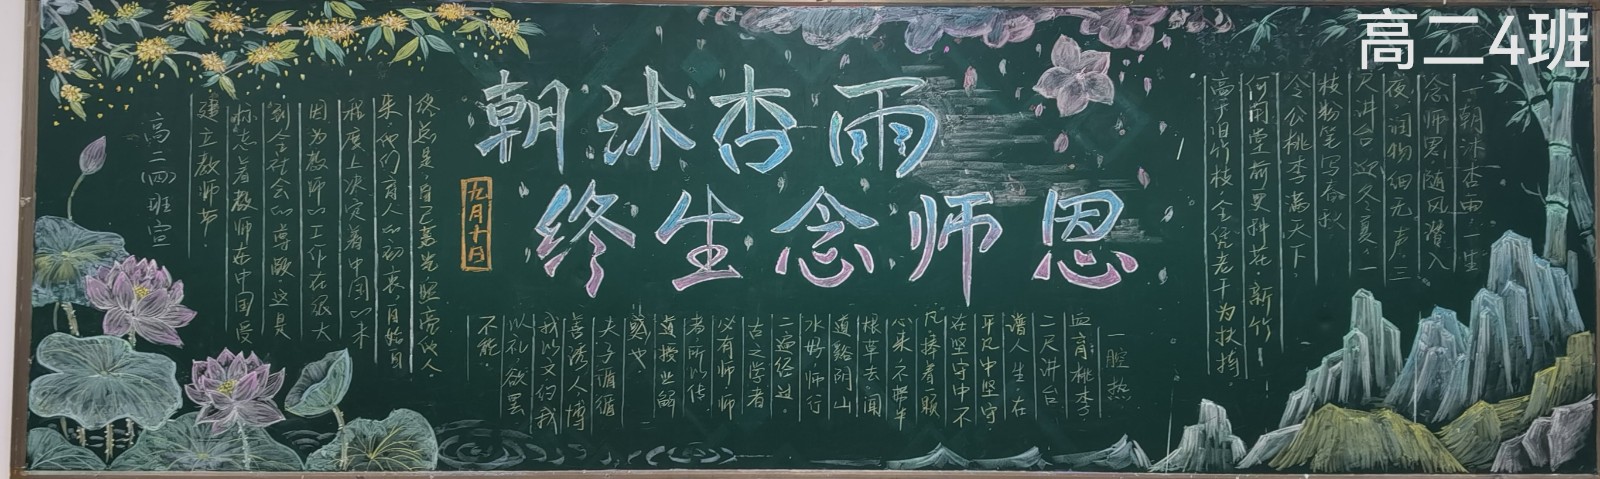 高二4班
朝沐杏雨
终生念师恩
九月十日
一朝沐杏雨，一生
念师恩，随风潜入
夜，润物细无声，三
尺讲台迎冬夏，一
枝粉笔写春秋
令公桃李满天下，
何用堂前更种花，新竹
高于旧竹枝，全凭老干为扶持。
一腔热
血育桃李，
三尺讲台
谱人生在
平凡中坚守
在坚守中不
凡，捧着
心来，不带半
根草去，闻
道
水好，师行
古之学者
必有师，师
者，所以传
道授业解
惑也
夫子循循
善诱人，博
我以文，约我
以礼，欲罢
不能。
是，自己发光照亮他人
来他们育人的初衷，
程度上决定着中国的未
因为教师的工作在很大
到全社会的尊敬，这是
标志着教师在中国受
建立教师节，
高二（四）班宣